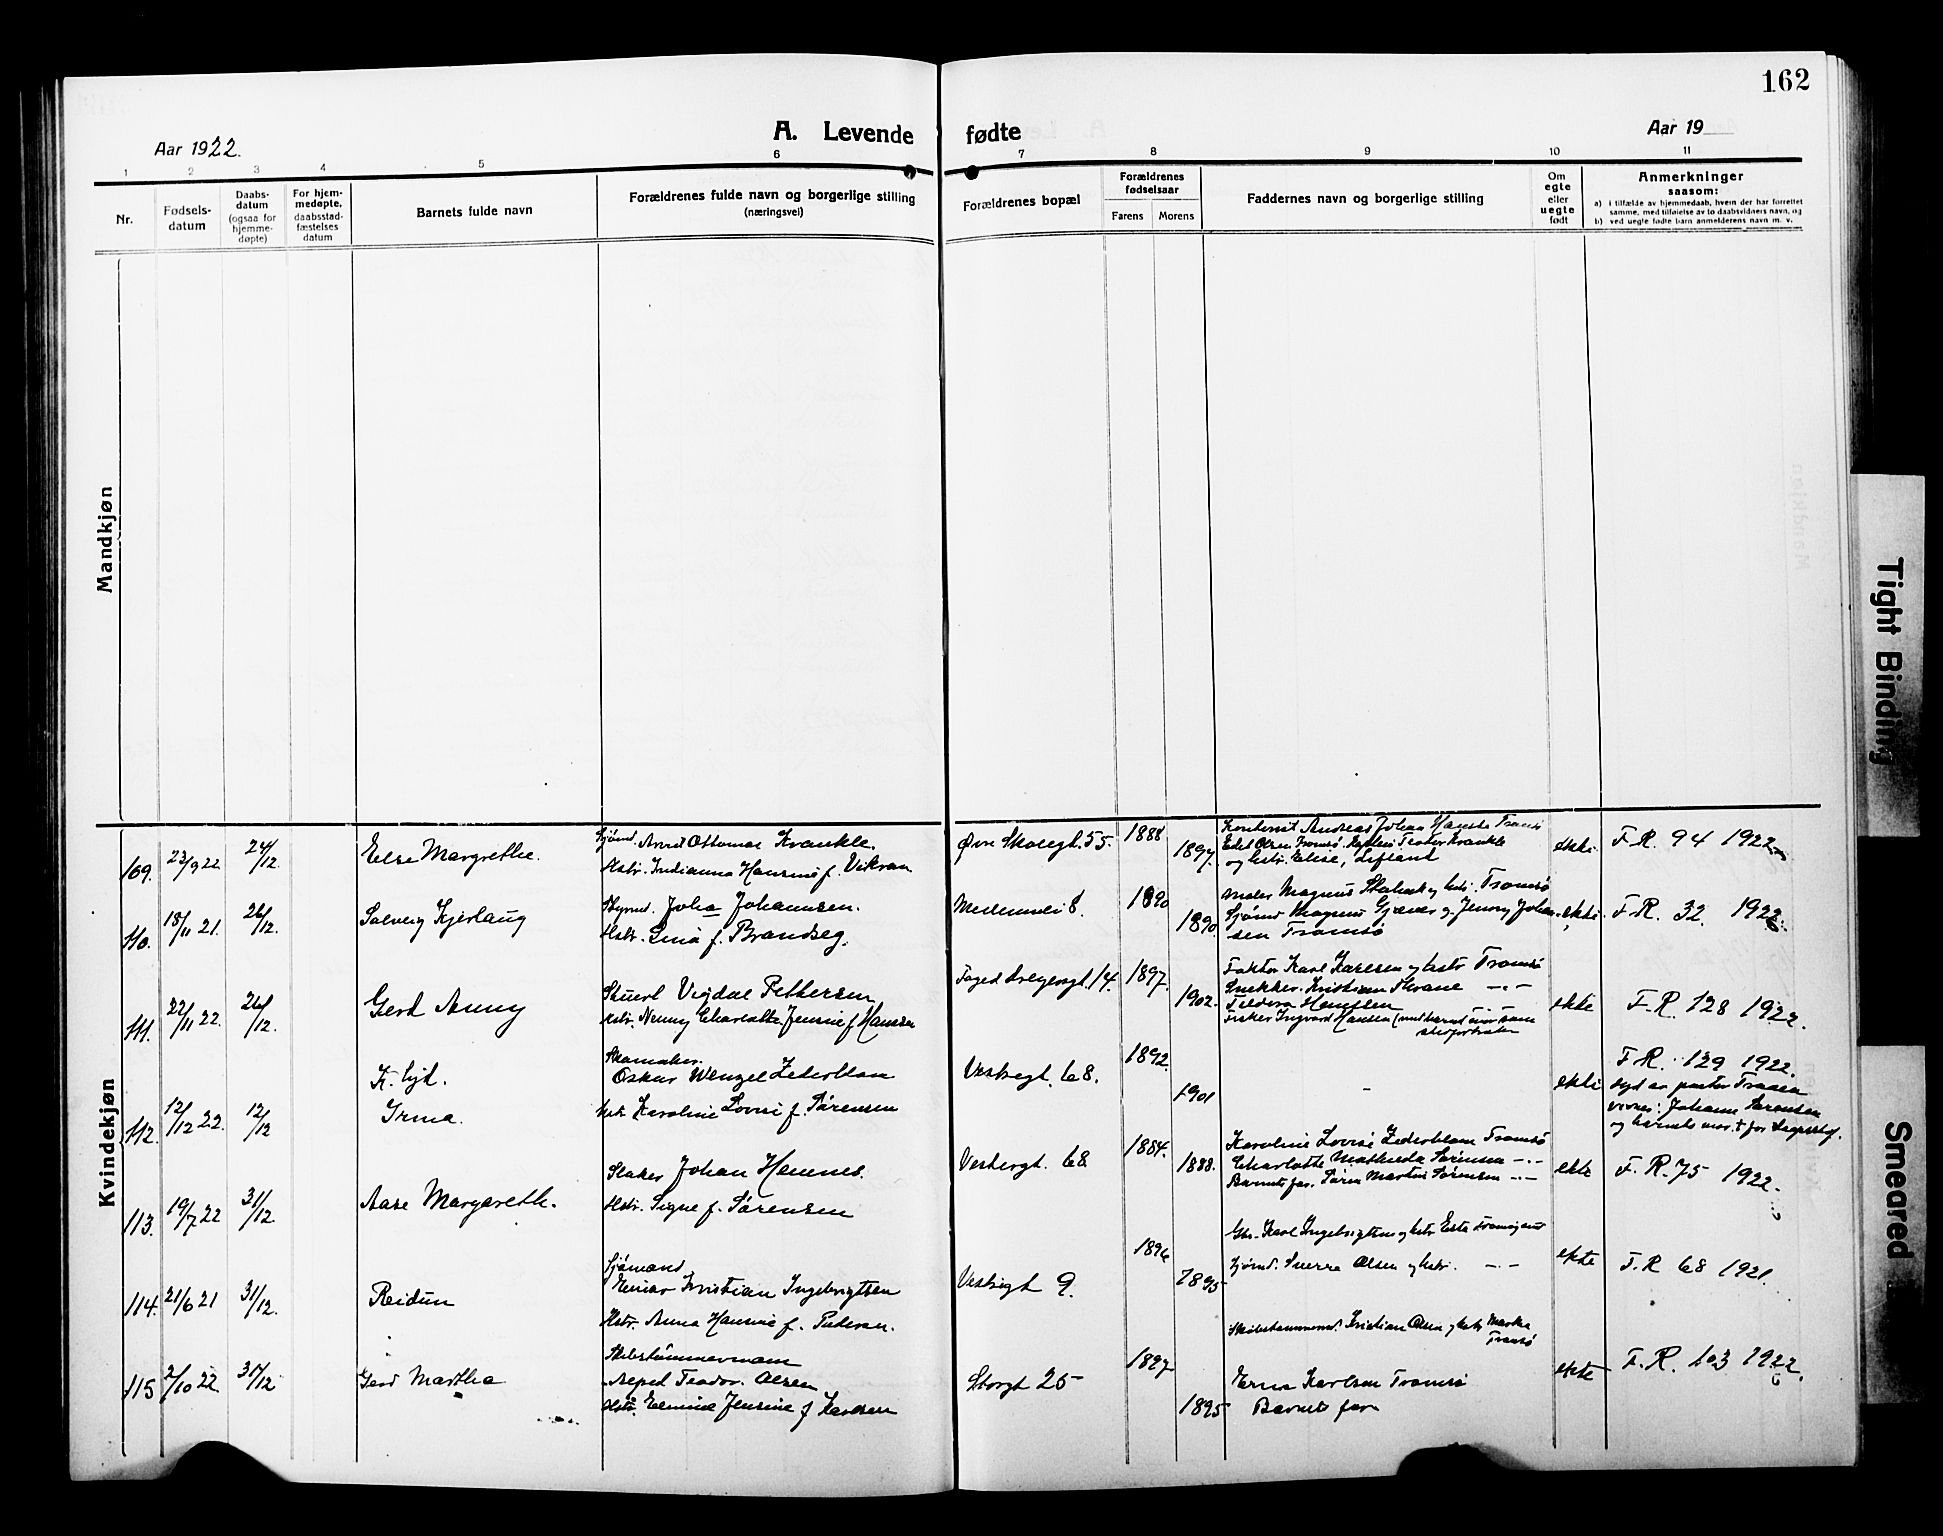 162
A. Levende fødte
Aar 1922.
Aar 19
1 2 3 4 5 6 7 8 9 10 11
Nr.
Fødsels-
datum
Daabs-
datum
(ogsaa for
hjemme-
døpte)
For hjem-
medøpte,
daabsstad-
fæstelses
datum
Barnets fulde navn
Forældrenes fulde navn og borgerlige stilling
(næringsvei)
Forældrenes bopæl
Forældrenes
fødselsaar
Farens
Morens
Faddernes navn og borgerlige stilling
Om
egte
eller
uegte
født
Anmerkninger
saasom:
a) i tilfælde av hjemmedaab, hvem der har forrettet
samme, med tilføielse av to daabsvidners navn, og
b) ved uegte fødte barn anmelderens navn m. v.
Mandkjøn
Kvindekjøn
109. 23/9 22 24/12. Else Margrethe.
Sjømd. Arnt Ottomar Krankle.
Hstr. Indianna Hansine f. Vikran
Øvre Skolegt. 55. 1888 1897.
Andreas Johan Tromsø
Edel Olsen Tromsø. Teodor Krankle
og hstr. Elise,
ekte. F.R. 94 1922
110. 18/11 21. 26/12. Solveig Kjerlaug
Styrmd. Johan Johannsen.
Hstr. Gina f. Brandseg.
Mellemvei 8. 1890 1890.
Maler Magnus og hstr. Tromsø
Sjømd Magnus Gjæver og Jenny Johan-
sen Tromsø
ekte. F.R. 32 1922.
111. 22/11 22. 26/12. Gerd Anny
Stuert Vigdal Pettersen
Hstr. Nenny Charlotte Jensine f Hansen
Foged Dreyersgt. 14. 1897. 1902.
Faktor Karl Karlsen og hstr Tromsø
Snekker. Kristian Skrane -"-
Teodora Hansen -"-
Fisker Ingvard Hansen
ekte F.R. 128 1922.
112. 12/12 22. 12/12
K. hjd.
Irma.
Skomaker.
Oskar Wenzel Zederblom
Hstr. Karoline Lovise f. Sørensen
Vestregt. 68. 1892. 1901
-
ekte
F.R. 129 1922.
Johanne Sørensen
113. 19/7 22 31/12. Aase Margarethe.
Slakter Johan Hannes.
Hstr. Signe f. Sørensen
Vestregt. 68 1884. 1888.
Karoline Lovise Zederblom Tromsø
Charlotte Mathilda Sørensen -"-
Barnets far. Søren Martin Sørensen -"-
ekte F.R. 75 1922.
114. 21/6 21 31/12. Reidun
Sjømand
Einar Kristian Ingebrigtsen
Hstr. Anna Hansine f. Pedersen.
Vestregt 9. 1896 1895
Karl Ingebrigtsen og hstr
Sjømd. Sverre Olsen og hstr. -"-
ekte F.R 68 1921.
115 2/10 22 31/12 Gerd Martha
Skibstømmermann
Teodor Olsen
Hstr. Elmine Jensine f Karlsen
Storgt 25 1897 1895
Skibstømmermd. Kristian Olsen og hstr Marta
Tromsø
Erna Karlsen Tromsø
Barnets far
ekte F.R. 103 1922.
Tight Binding
Smeared